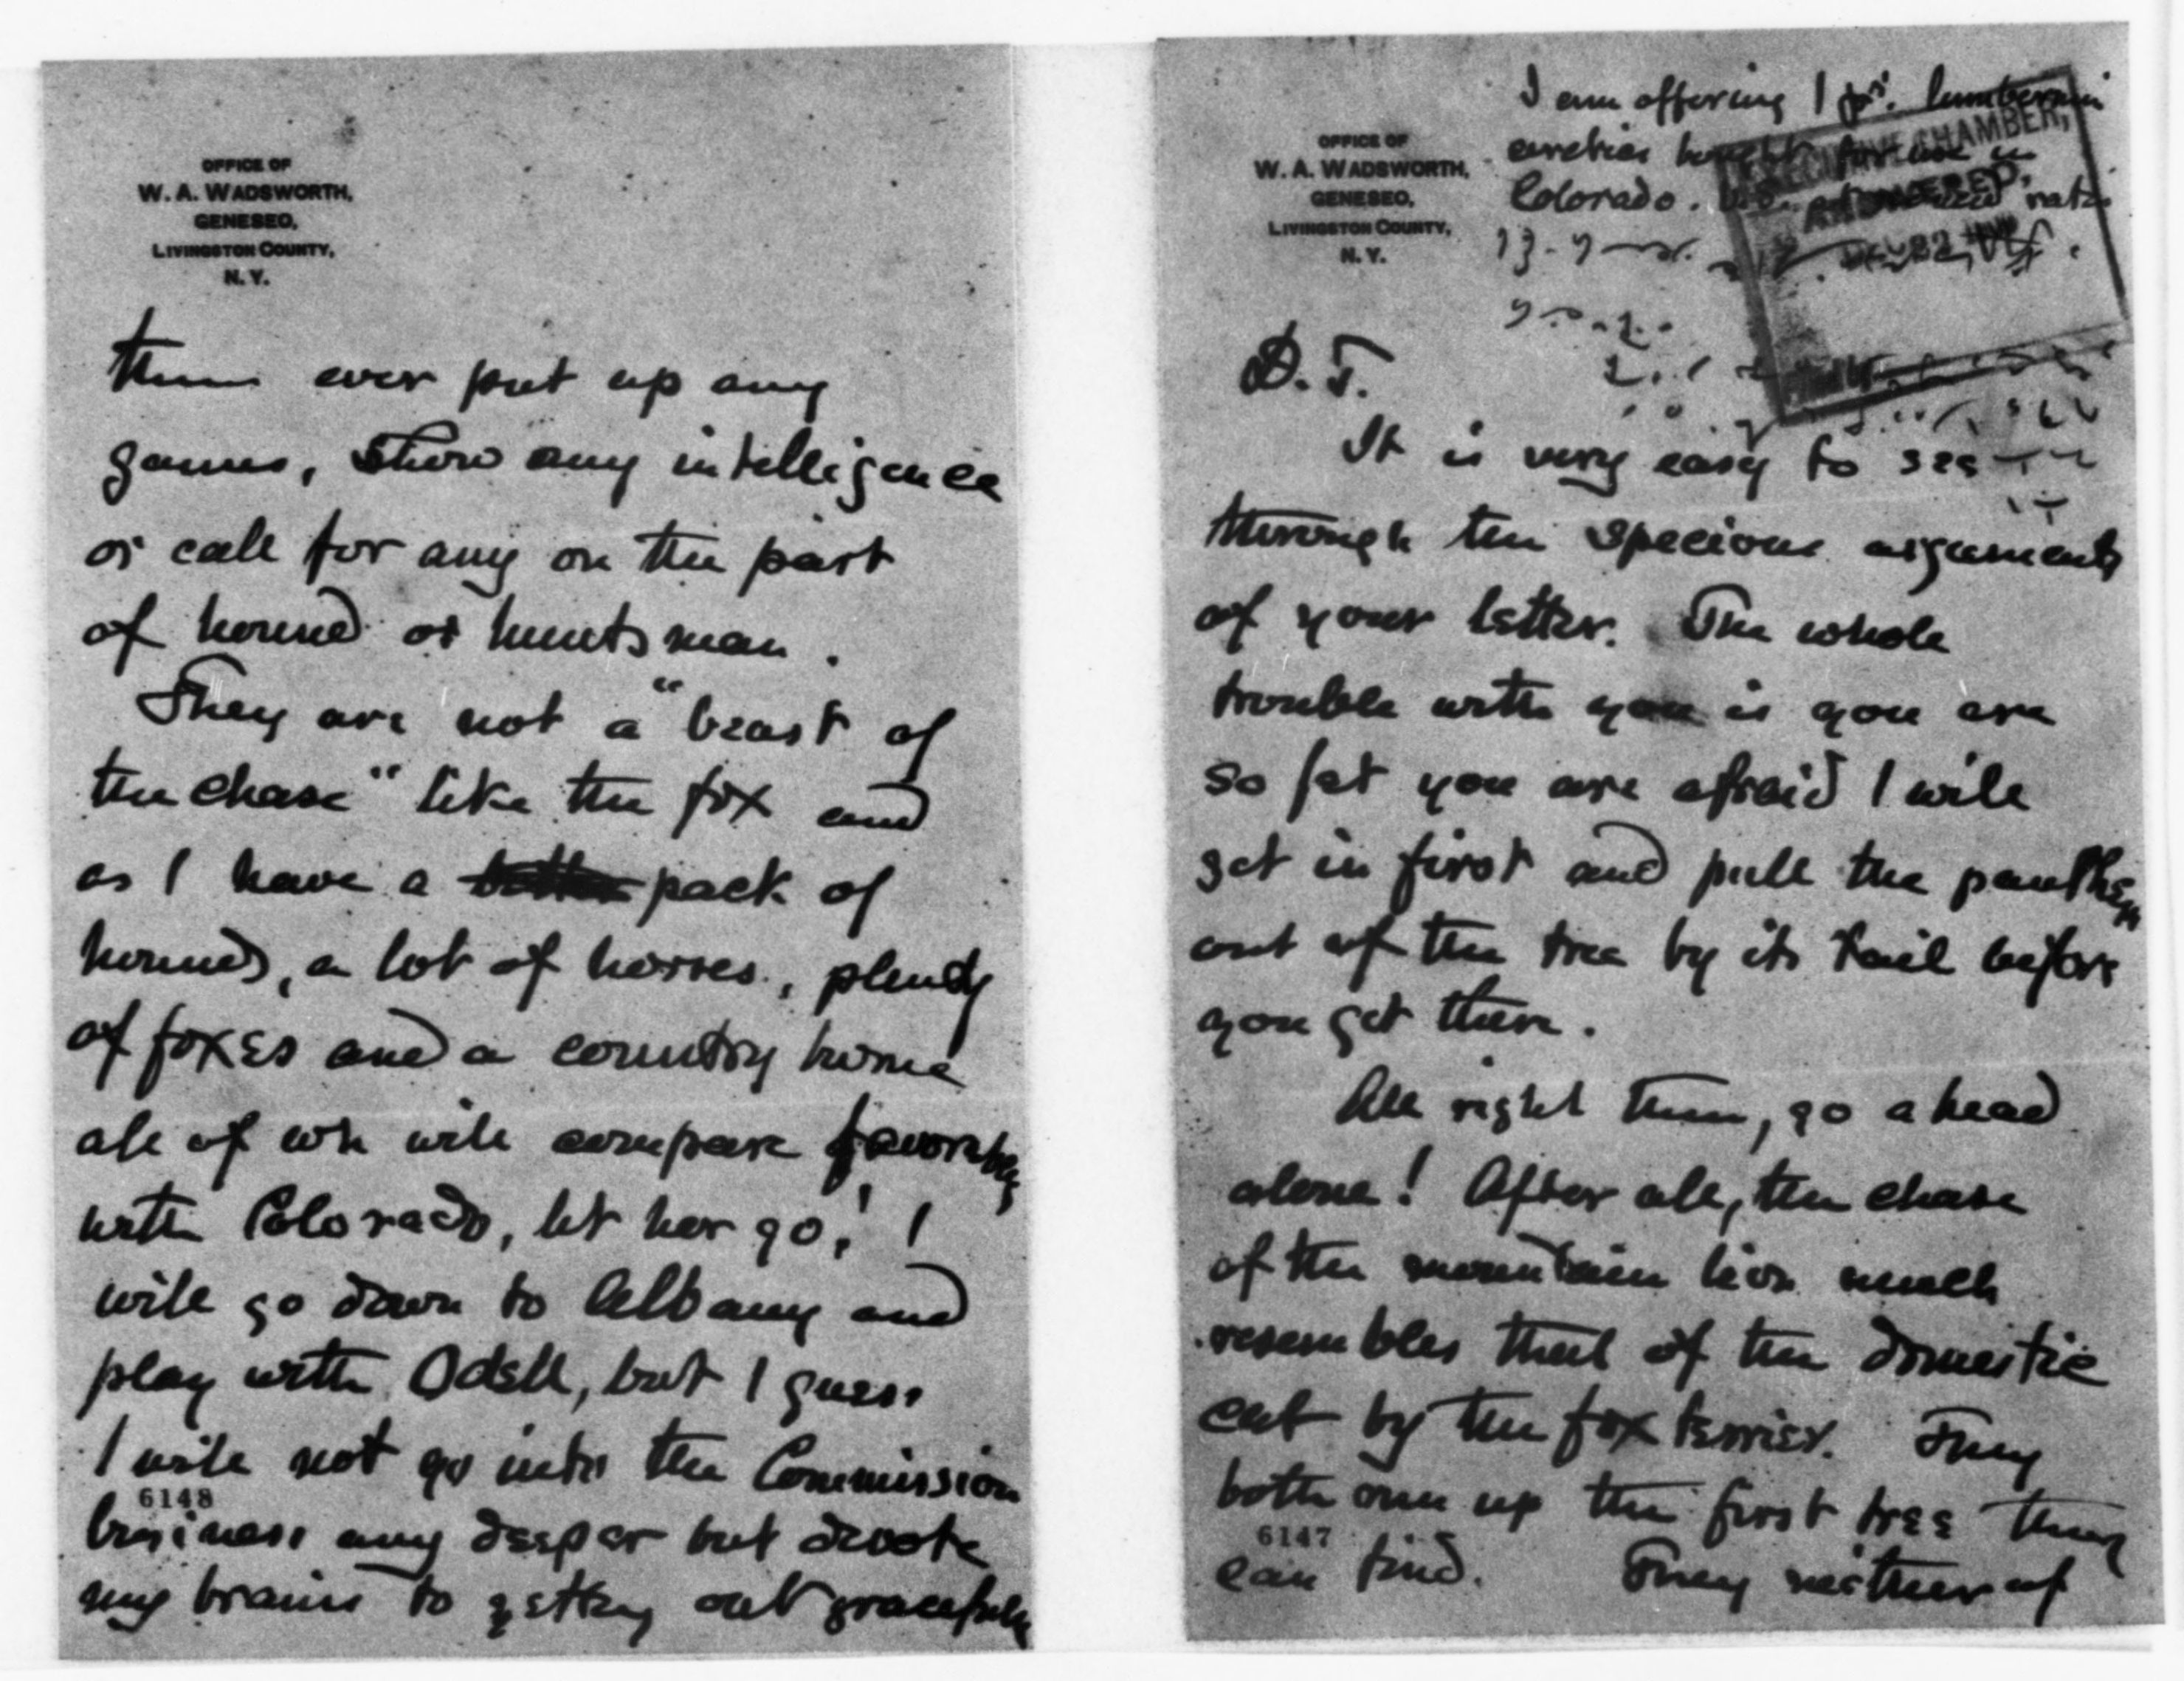 OFFICE OF
W. A. WADSWORTH,
GENESEO,
LIVINGSTON COUNTY,
N. Y.
them ever put up any
games, show any intelligence
or call for any on the part
of hound or huntsman.
They are not a "beast of
the chase" like the fox and
as I have a pack of
hounds, a lot of horses, plenty
of foxes and a country home
all of wh will compare favorably
with Colorado, let her go! I
will go down to Albany and
play with Odell, but I guess
I will not go into the Commission
6148
business any deeper but devote
my brains to getting out gracefully
I am offering 1 pr.
OFFICE OF
W. A. WADSWORTH,
GENESEO,
LIVINGSTON COUNTY,
N. Y.
bought for use in
Colorado.
EXECUTIVE CHAMBER,
ANSWERED.
D. T.
It is very easy to see
through the specious arguments
of your letter. The whole
trouble with you is you are
so fat you are afraid I will
get in first and pull the panther
out of the tree by its tail before
you get there.
All right then, go ahead
alone! After all, the chase
of the mountain lion much
resembles that of the domestic
cat by the fox terrier. They
both run up the first tree they
6147
can find. They neither of